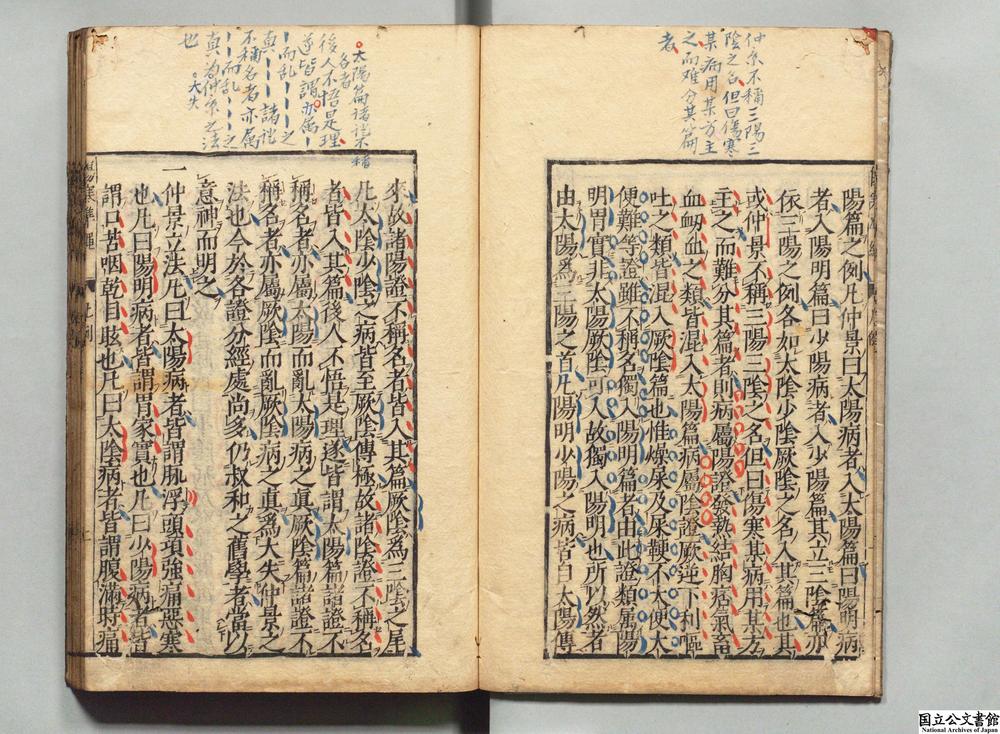 仲景不稱三陽三
陰之名但曰傷寒
某病用某方主
之而难分其篇
者
陽篇之例凡仲景曰太陽病者入太陽篇曰陽明病
者入陽明篇曰少陽病者入少陽篇其立三陰篇亦
依三陽之例各如太陰少陰厥陰之名入其篇也其
或仲景不稱三陽三陰之名但曰傷寒某病用某方
主之而難分其篇者則病屬陽證發熱結胸痞氣畜
血衂血之類皆混入太陽篇病屬陰證厥逆下利嘔
吐之類皆混入厥陰篇也惟燥屎及屎鞕不大便大
便難等證雖不稱名獨入陽明篇者由此證類屬陽
明胃實非太陽厥陰可入故獨入陽明也所以然者
由太陽爲三陽之首凡陽明少陽之病皆自太陽傳
太陽篇諸證不稱
名者
後人不悟是理
遂皆謂亦属
而乱之
真諸證
不稱名者亦属
而乱之
真为仲景之法
也 大失
來故諸陽證不稱名者皆入其篇厥陰爲三陰之尾
凡太陰少陰之病皆至厥陰傳極故諸陰證不稱名
者皆入其篇後人不悟是理遂皆謂太陽篇諸證不
稱名者亦屬太陽而亂太陽病之眞厥陰篇諸證不
稱名者亦屬厥陰而亂厥陰病之眞爲大失仲景之
法也今於各證分經處尚多仍叔和之舊學者當以
意神而明之
一仲景立法凡曰太陽病者皆謂脈浮頭項強痛惡寒
也凡曰陽明病者皆謂胃家實也凡曰少陽病者皆
謂口苦咽乾目眩也凡曰太陰病者皆謂腹滿時痛
凡例
国立公文書館
National Archives of Japan